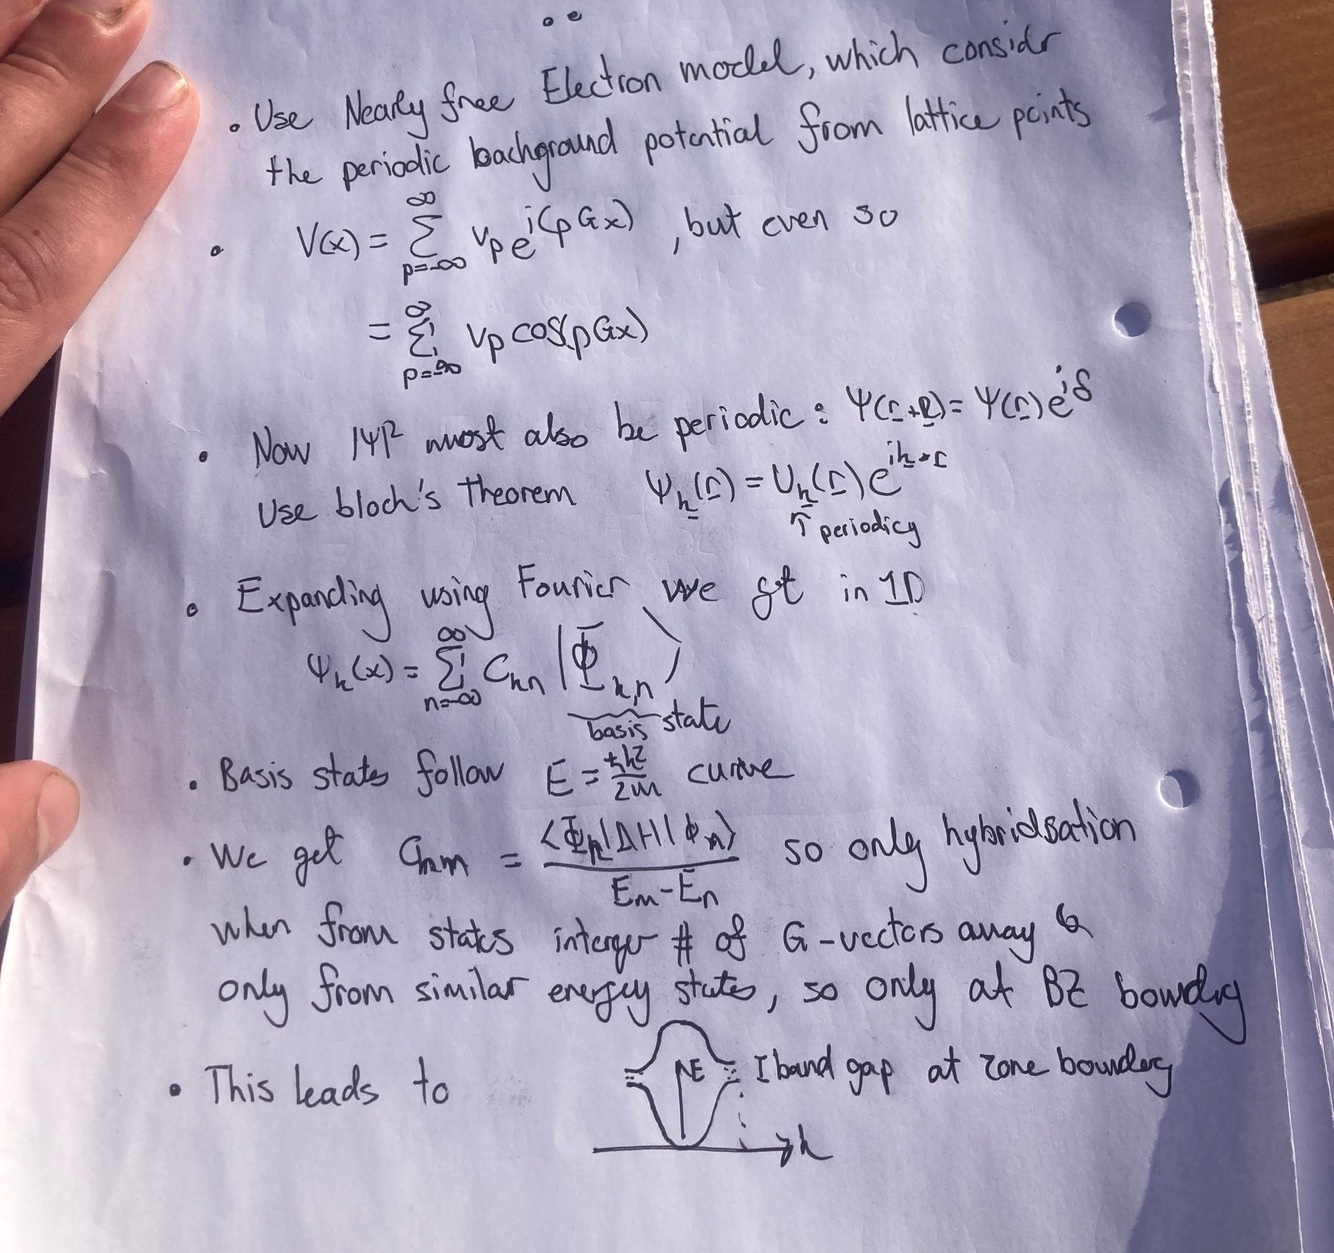 • Use Nearly free Electron model, which considr
the periodic background potential from lattice points
• V(x) = ∑_{p=-∞}^{∞} V_p e^{i(pGx)}, but even so
= ∑_{p=-∞}^{∞} V_p cos(pGx)
• Now |Ψ|² must also be periodic: Ψ(r+R) = Ψ(r)e^{iδ}
Use bloch's Theorem Ψ_k(r) = U_k(r) e^{ik•r}
↑ periodicy
• Expanding using Fourier we get in 1D
Ψ_k(x) = ∑_{n=-∞}^{∞} C_{kn} |Φ_{k,n}⟩
basis state
• Basis states follow E = ħk²/2m curve
• We get C_{nm} = ⟨Φ_k|ΔH|Φ_n⟩ / (E_m - E_n) so only hybridsation
when from states interger # of G-vectors away &
only from similar energy states, so only at BZ boundry
• This leads to
E I band gap at zone boundery
k